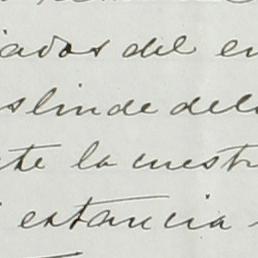 iados del en
slinde dela
te la cuestr
estancia